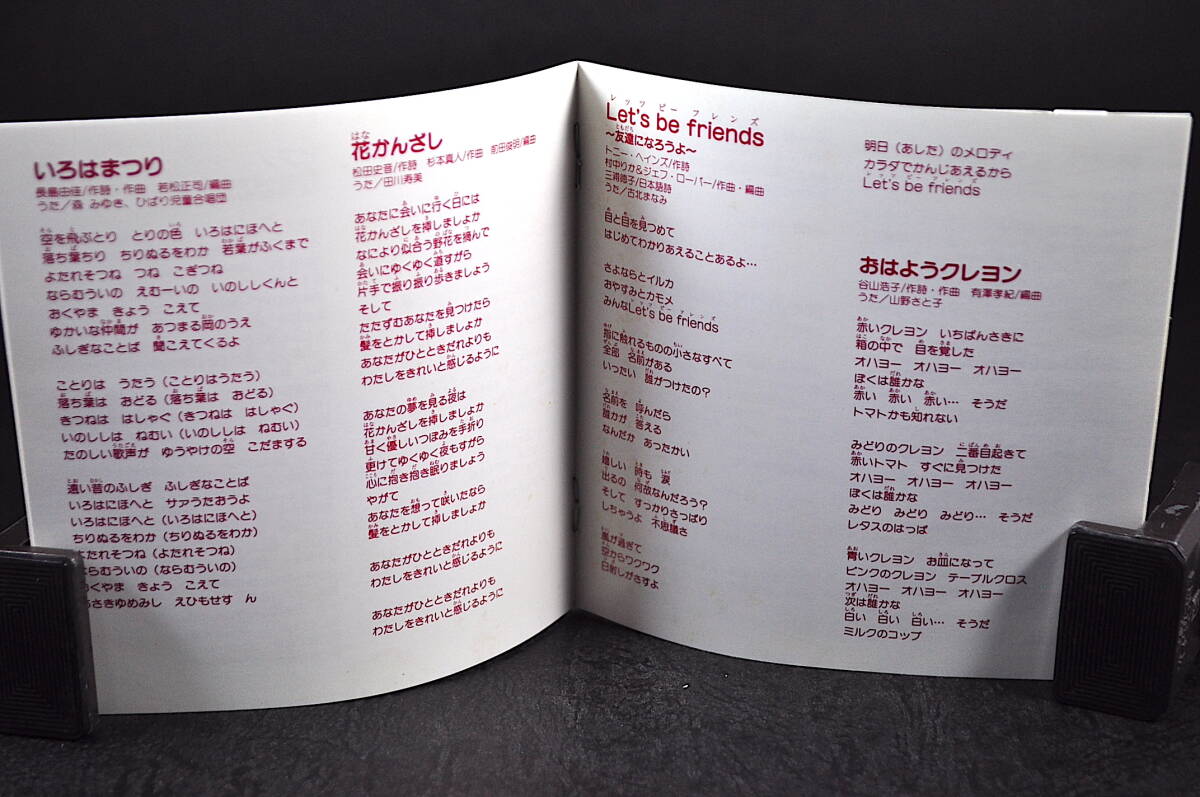 いろはまつり
長島由佳/作詩・作曲　若松正司/編曲
うた／森 みゆき、ひばり児童合唱団
空を飛ぶとり　とりの色　いろはにほへと
落ち葉ちり　ちりぬるをわか　若葉がふくまで
よたれそつね　つね　こぎつね
ならむういの　えむーいの　いのししくんと
おくやま　きょう　こえて
ゆかいな仲間が　あつまる岡のうえ
ふしぎなことば　聞こえてくるよ
ことりは　うたう（ことりはうたう）
落ち葉は　おどる（落ち葉は　おどる）
きつねは　はしゃぐ（きつねは　はしゃぐ）
いのししは　ねむい（いのししは　ねむい）
たのしい歌声が　ゆうやけの空　こだまする
遠い昔のふしぎ　ふしぎなことば
いろはにほへと　サァうたおうよ
いろはにほへと（いろはにほへと）
ちりぬるをわか（ちりぬるをわか）
よたれそつね（よたれそつね）
ならむういの（ならむういの）
くやま　きょう　こえて
あさきゆめみし　えひもせす　ん
花かんざし
松田史音/作詩　杉本真人/作曲　前田俊明/編曲
うた／田川寿美
あなたに会いに行く日には
花かんざしを挿しましょか
なにより似合う野花を摘んで
会いにゆくゆく道すがら
片手で振り振り歩きましょう
そして
たたずむあなたを見つけたら
髪をとかして挿しましょか
あなたがひとときだれよりも
わたしをきれいと感じるように
あなたの夢を見る夜は
花かんざしを挿しましょか
甘く優しいつぼみを手折り
更けてゆくゆく夜もすがら
心に抱き抱き眠りましょう
やがて
あなたを想って咲いたなら
髪をとかして挿しましょか
あなたがひとときだれよりも
わたしをきれいと感じるように
あなたがひとときだれよりも
わたしをきれいと感じるように
Let's be friends
〜友達になろうよ〜
トニー・ヘインズ/作詩
村中りか&ジェフ・ローバー/作曲・編曲
三浦徳子/日本語詩
うた／古北まなみ
目と目を見つめて
はじめてわかりあえることあるよ…
さよならとイルカ
おやすみとカモメ
みんなLet's be friends
指に触れるものの小さなすべて
全部　名前がある
いったい　誰がつけたの？
名前を　呼んだら
誰かが　答える
なんだか　あったかい
嬉しい　時も　涙
出るの　何故なんだろう？
そして　すっかりさっぱり
しちゃうよ　不思議さ
風が過ぎて
空からワクワク
日射しがさすよ
明日（あした）のメロディ
カラダでかんじあえるから
Let's be friends
おはようクレヨン
谷山浩子/作詩・作曲　有澤孝紀/編曲
うた／山野さと子
赤いクレヨン　いちばんさきに
箱の中で　目を覚した
オハヨー　オハヨー　オハヨー
ぼくは誰かな
赤い　赤い　赤い…　そうだ
トマトかも知れない
みどりのクレヨン　二番目起きて
赤いトマト　すぐに見つけた
オハヨー　オハヨー　オハヨー
ぼくは誰かな
みどり　みどり　みどり…　そうだ
レタスのはっぱ
青いクレヨン　お皿になって
ピンクのクレヨン　テーブルクロス
オハヨー　オハヨー　オハヨー
次は誰かな
白い　白い　白い…　そうだ
ミルクのコップ